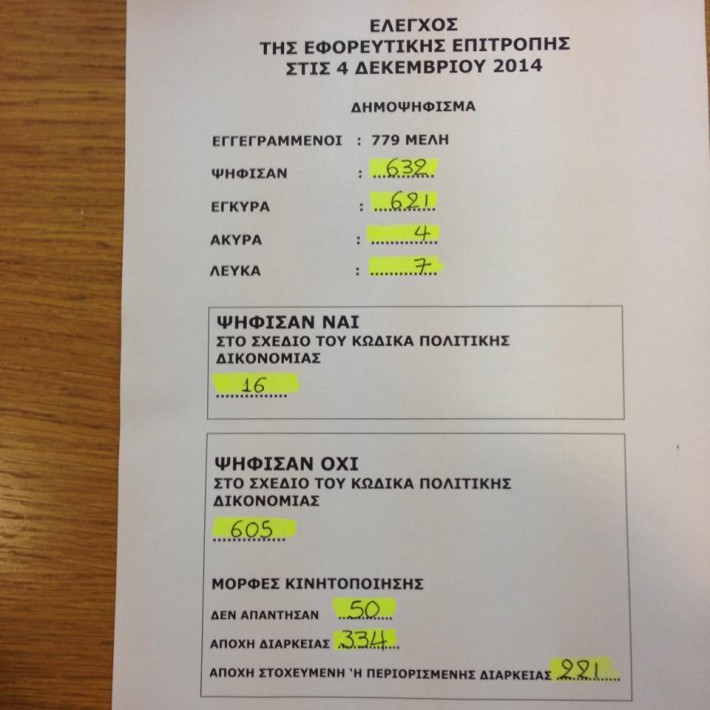 ΕΛΕΓΧΟΣ
ΤΗΣ ΕΦΟΡΕΥΤΙΚΗΣ ΕΠΙΤΡΟΠΗΣ
ΣΤΙΣ 4 ΔΕΚΕΜΒΡΙΟΥ 2014
ΔΗΜΟΨΗΦΙΣΜΑ
ΕΓΓΕΓΡΑΜΜΕΝΟΙ : 779 ΜΕΛΗ
ΨΗΦΙΣΑΝ : 632
ΕΓΚΥΡΑ : 621
ΑΚΥΡΑ : 4
ΛΕΥΚΑ : 7
ΨΗΦΙΣΑΝ ΝΑΙ
ΣΤΟ ΣΧΕΔΙΟ ΤΟΥ ΚΩΔΙΚΑ ΠΟΛΙΤΙΚΗΣ
ΔΙΚΟΝΟΜΙΑΣ
16
ΨΗΦΙΣΑΝ ΟΧΙ
ΣΤΟ ΣΧΕΔΙΟ ΤΟΥ ΚΩΔΙΚΑ ΠΟΛΙΤΙΚΗΣ
ΔΙΚΟΝΟΜΙΑΣ
605
ΜΟΡΦΕΣ ΚΙΝΗΤΟΠΟΙΗΣΗΣ
ΔΕΝ ΑΠΑΝΤΗΣΑΝ 50
ΑΠΟΧΗ ΔΙΑΡΚΕΙΑΣ 334
ΑΠΟΧΗ ΣΤΟΧΕΥΜΕΝΗ Ή ΠΕΡΙΟΡΙΣΜΕΝΗΣ ΔΙΑΡΚΕΙΑΣ 221